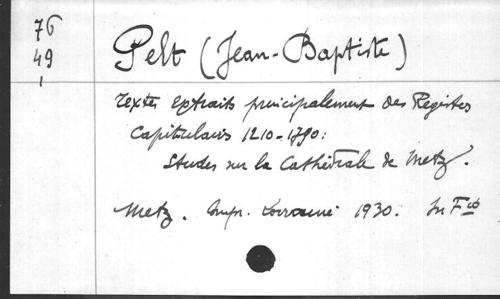 76
49
1
Pelt (Jean-Baptiste)
Textes extraits principalement des Registres
Capitulaires 1210-1790:
Etudes sur la Cathédrale de Metz.
Metz. Impr. Lorraine 1930. In Fº